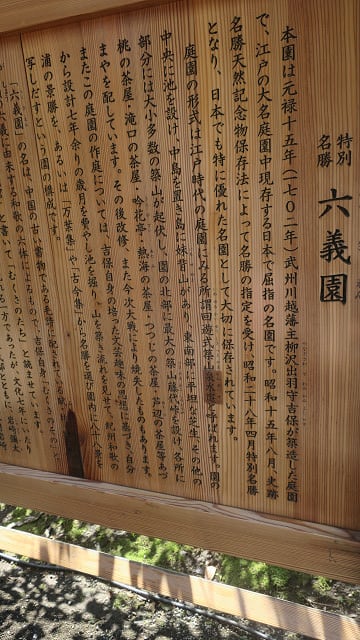 特別
名勝
六義園
本園は元禄十五年(一七〇二年)武州川越藩主柳沢出羽守吉保の築造した庭園
で、江戸の大名庭園中現存する日本で屈指の名園です。昭和十五年八月、史跡
名勝天然記念物保存法によって名勝の指定を受け、昭和二十八年四月特別名勝
となり、日本でも特に優れた名園として大切に保存されています。
庭園の形式は江戸時代の庭園にみる所謂回遊式築山 と呼ばれます。園の
中央に池を設け、中島を置き島に妹背山があり、東南部に平坦な芝生、その他の
部分には大小多数の築山が起伏し、園の北部に最大の築山藤代峠を設け、各所に
桃の茶屋・滝口の茶屋・吟花亭・熱海の茶屋、つつじの茶屋、芦辺の茶屋等あづ
まやを配しています。その後改修、また今次大戦により焼失したものもあります。
またこの庭園の作庭については、吉保自身の培った文芸趣味の思想に基づき、自分
から設計七年余りの歳月を費やし池を掘り、山を築き、流れを見せて、紀州和歌の
浦の景勝を、あるいは「万葉集」や「古今集」から名勝を選び園内に八十八景を
写しだすという園の構成です。
「六義園」の名は、中国の古い書物である毛詩に
六義に由来する和歌の六体によるもので、吉保自身